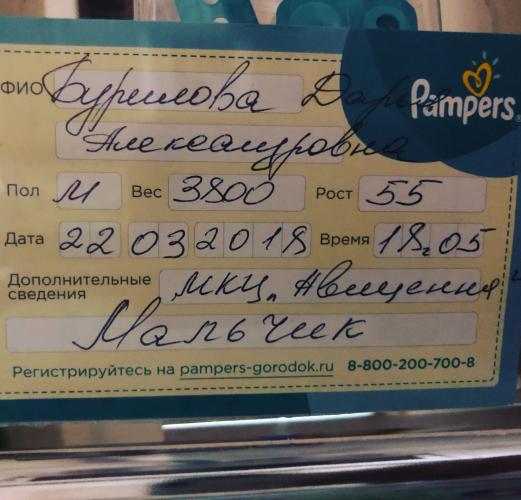 ФИО Бурилова Дарья
Pampers
Александровна
Пол М Вес 3800 Рост 55
Дата 22 03 2018 Время 18 05
Дополнительные
сведения МКЦ
Мальчик
Регистрируйтесь на pampers-gorodok.ru 8-800-200-700-8